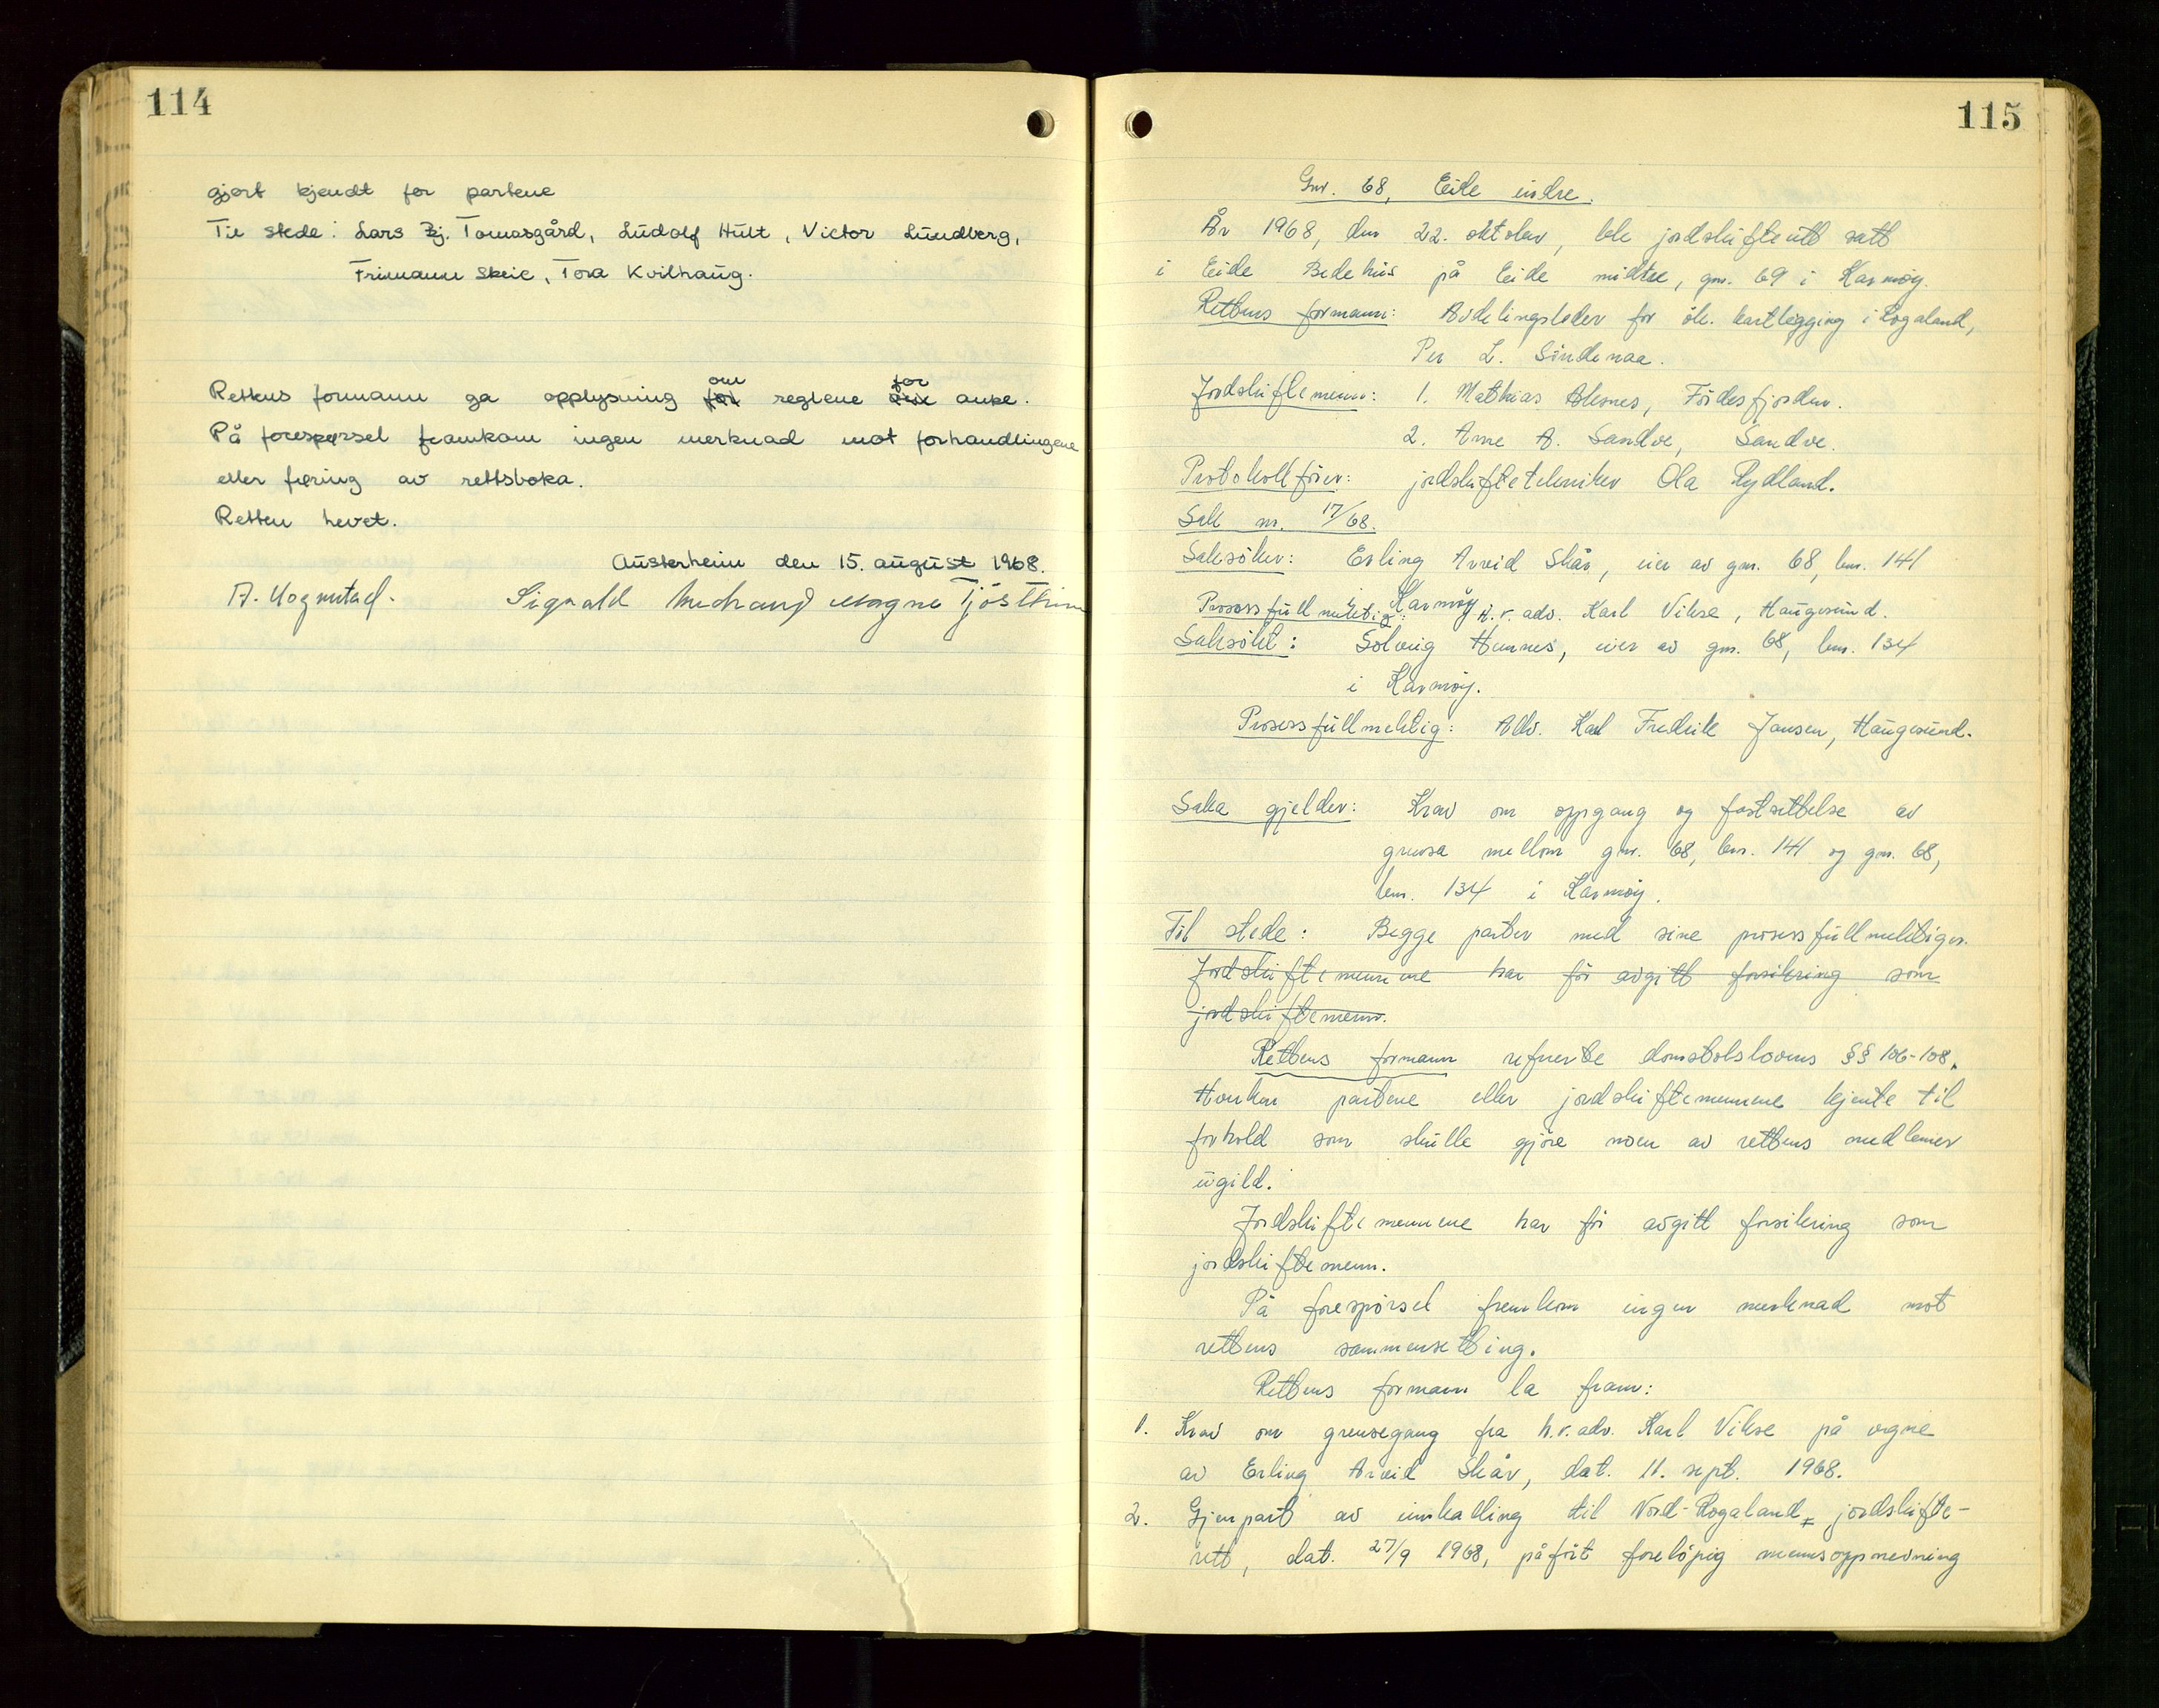 114
gjort kjendt for partene
Til stede: Lars Bj. Tomasgård, Ludolf Hult, Victor Lundberg,
Frimann Skeie, Tora Kvilhaug.
om for
Rettens formann ga opplysning for reglene om anke.
På forespørsel framkom ingen merknad mot forhandlingene
eller føring av rettsboka.
Retten hevet.
Austerheim den 15. august 1968.
A. Hognestad. Sigvald Magne Tjøstheim
115
Gnr. 68, Eide indre.
År 1968, den 22. oktober, ble jordskifterett satt
i Eide Bedehus på Eide midtre, gnr. 69 i Karmøy.
Rettens formann: Avdelingsleder for øk. kartlegging i Rogaland,
Per L. Sundenaa.
Jordskiftemenn: 1. Mathias Alesnes, Førdesfjorden.
2. Arne A. Sandve, Sandve.
Protokollfører: jordskiftetekniker Ola Rydland.
Sak nr. 17/68.
Saksøker: Erling Arvid Skår, eier av gnr. 68, bnr. 141
i Karmøy
Prosessfullmektig: h.r.adv. Karl Vikse, Haugesund.
Saksøkt: Solveig Hemnes, eier av gnr. 68, bnr. 134
i Karmøy.
Prosessfullmektig: Adv. Karl Fredrik Jansen, Haugesund.
Saka gjelder: Krav om oppgang og fastsettelse av
grensa mellom gnr. 68, bnr. 141 og gnr. 68,
bnr. 134 i Karmøy.
Til stede: Begge parter med sine prosessfullmektiger.
Jordskiftemennene har før avgitt forsikring som
jordskiftemenn.
Rettens formann refererte domstolslovens §§ 106-108.
Hverken partene eller jordskiftemennene kjente til
forhold som skulle gjøre noen av rettens medlemer
ugild.
Jordskiftemennene har før avgitt forsikring som
jordskiftemenn.
På forespørsel fremkom ingen merknad mot
rettens sammensetting.
Rettens formann la fram:
1. Krav om grensegang fra h.r.adv. Karl Vikse på vegne
av Erling Arvid Skår, dat. 11. sept. 1968.
2. Gjenpart av innkalling til Nord-Rogaland jordskifte-
rett, dat. 27/9 1968, påført foreløpig mannsoppnevning